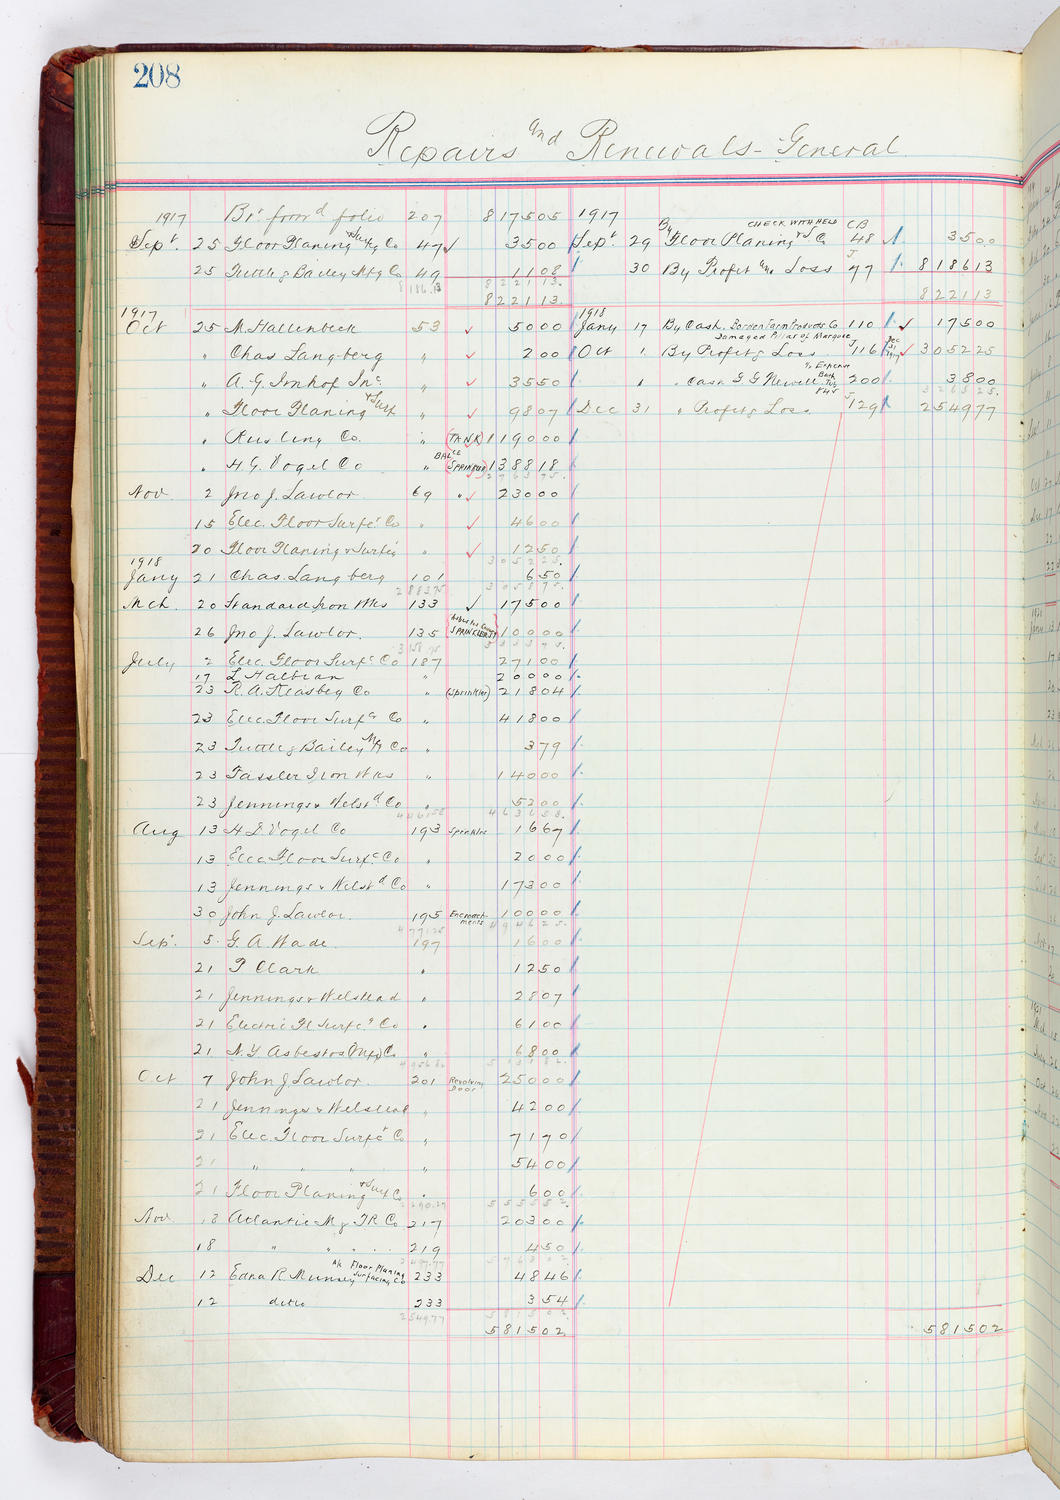 208
Repairs and Renewals - General
1917 Bt forwd folio 207 817505
Sept 25 Floor Planing & Surfg Co 47 3500
25 Tuttle & Bailey Mfg Co 49 1108
8186.13 822113.
822113.
1917
Oct 25 M. Hallenbeck 53 5000
" Chas Langberg " 200
" A. G. Imhof Inc. " 3550
" Floor Planing & Surf " 9807
" Rusling Co. " (TANK) 119000
" H. G. Vogel Co " BALCE (SPRINKLER) 138818
296375.
Nov 2 Jno J. Lawlor 69 " 23000
15 Elec. Floor Surfc Co " 4600
20 Floor Planing & Surfg " 1250
305225.
1918
Jany 21 Chas. Langberg 101 650
305875.
Mch. 20 Standard Iron Wks 133 17500
26 Jno J. Lawlor. 135 SPRINKLERS) 10000
3158.75 333375.
July 2 Elec. Floor Surfc Co 187 27100
17 L Halbran " 20000
23 R. A. Keasbey Co " (Sprinkler) 21804
23 Elec. Floor Surfc Co " 41800
23 Tuttle & Bailey Mfg Co " 379
23 Fassler Iron Wks " 14000
23 Jennings & Welstd Co " 5200
463658.
Aug 13 H G Vogel Co 193 Sprinkler 1667
13 Elec Floor Surfc Co " 2000
13 Jennings & Welstd Co " 17300
30 John J. Lawlor. 195 Encroachments 10000
4771.25 494625.
Sept. 5. G. A. Wade. 197 1600
21 P Clark " 1250
21 Jennings & Welstead " 2807
21 Electric Fl Surfc Co " 6100
21 N. Y Asbestos (Mfg) Co " 6800
Oct 7 John J Lawlor. 201 Revolving Door 25000
21 Jennings & Welstead " 4200
21 Elec. Floor Surfc Co " 7170
21 " " " " 5400
21 Floor Planing & Surf Co " 600
Nov. 18 Atlantic Mg TR Co 217 20300
18 " " " " 219 450
Dec 12 Edna R. Munsey A/c Floor Planing Surfacing Co 233 4846
12 ditto 233 354
2549.77 581502.
581502.
1917
Sept. 29 By Floor Planing & S Co CHECK WITHHELD CB 48 3500
30 By Profit and Loss J 77 818613
822113
1918
Jany 17 By Cash. Borden Farm Products Co 110 17500
Damaged Pillar of Marquee
Oct 1 By Profit & Loss. J 116 Dec 31 1917 305225
" " Cash G G Newell 200 3800
326525.
Dec 31 " Profit & Loss J 129 254977
581502